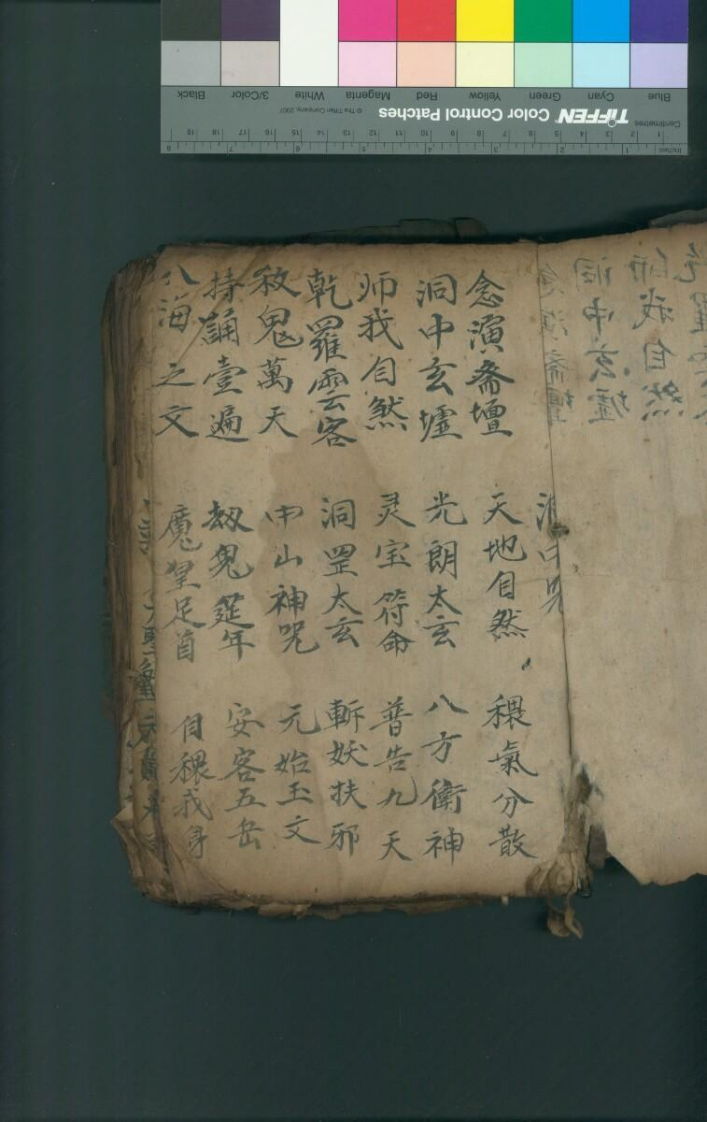 念演斋壇 天地自然 穢氣分散
洞中玄墟 光朗太玄 八方衛神
师我自然 灵宝符命 普告九天
乾羅雲客 洞罡太玄 斬妖扶邪
敘鬼萬天 中山神咒 元始玉文
持誦壹遍 刼鬼莚年 安客五岳
八海之文 魔皇足首 自穢我身
TIFFEN Color Control Patches
© The Tiffen Company, 2007
Blue Cyan Green Yellow Red Magenta White 3/Color Black
Centimetres
Inches